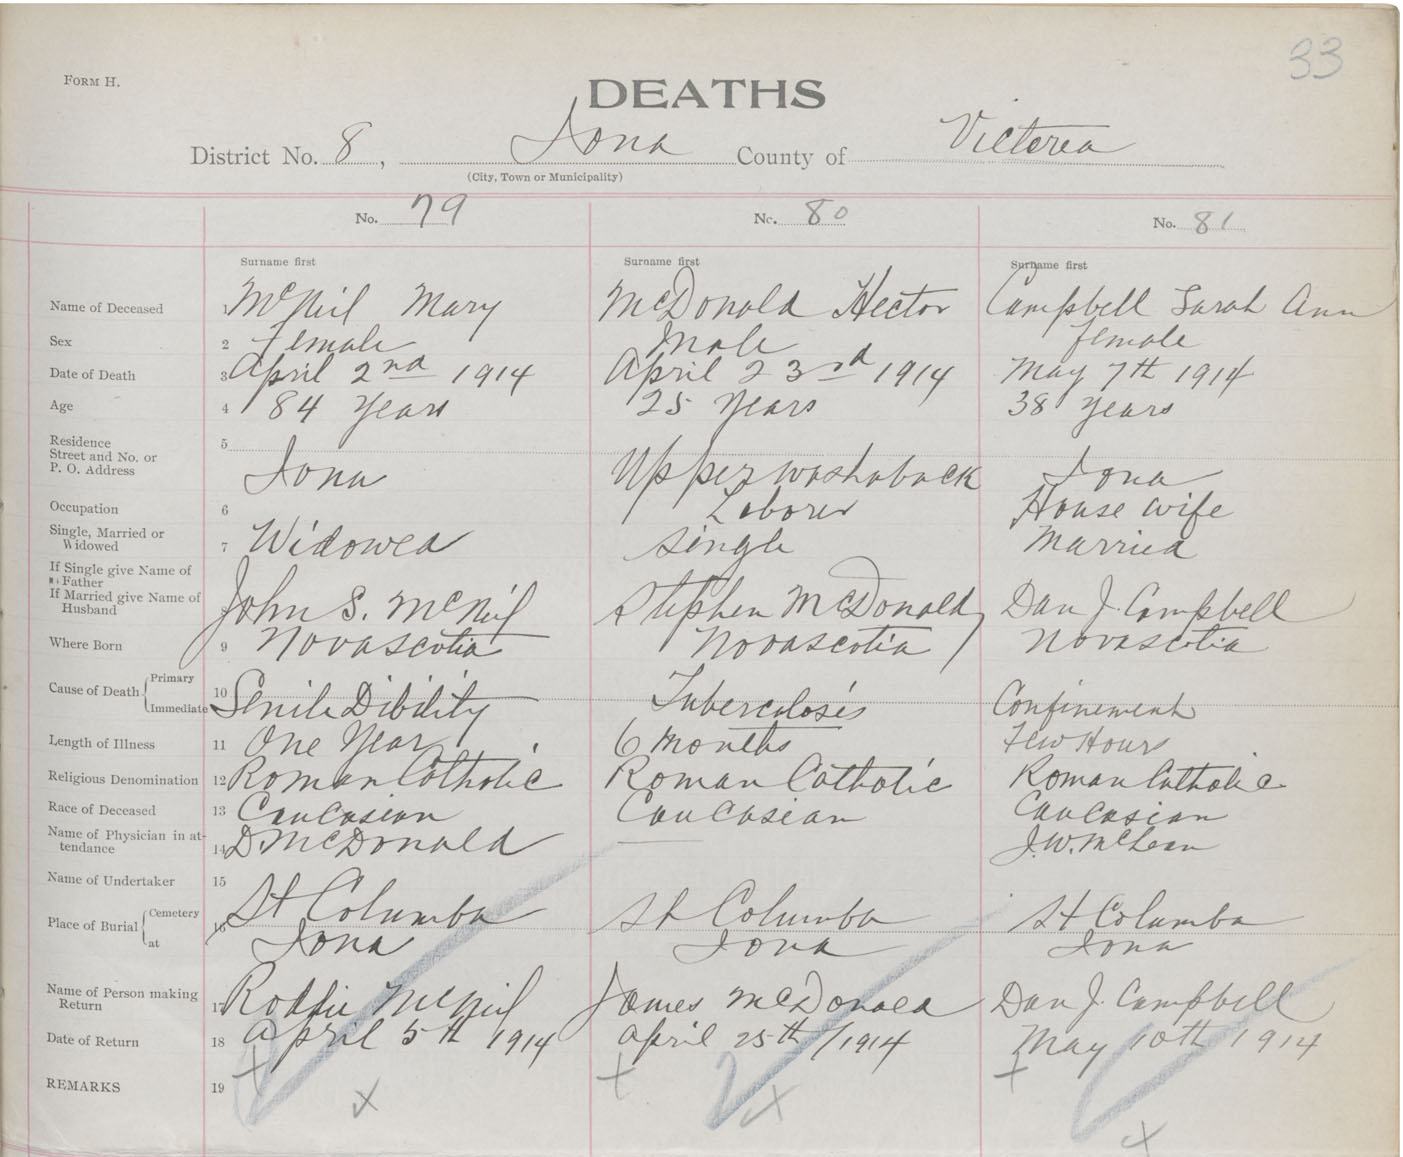 33
FORM H.
DEATHS
District No. 8, Iona County of Victoria
(City, Town or Municipality)
No. 79 No. 80 No. 81
Surname first Surname first Surname first
Name of Deceased 1 McNeil Mary McDonald Hector Campbell Sarah Ann
Sex 2 female Male female
Date of Death 3 April 2nd 1914 April 23rd 1914 May 7th 1914
Age 4 84 Years 25 Years 38 Years
Residence 5
Street and No. or
P. O. Address Iona Upper washaback Iona
Occupation 6 Laborer House wife
Single, Married or
Widowed 7 Widowed single Married
If Single give Name of
Father
If Married give Name of
Husband John S. McNeil Stephen McDonald Dan J. Campbell
Where Born 9 Novascotia Novascotia Novascotia
Cause of Death Primary
Immediate 10 Senile Dibility Tuberculosis Confinement
Length of Illness 11 One Year 6 months Few Hours
Religious Denomination 12 Roman Catholic Roman Catholic Roman Catholic
Race of Deceased 13 Caucasian Caucasian Caucasian
Name of Physician in at-
tendance 14 D. McDonald J. W. McLean
Name of Undertaker 15
Place of Burial Cemetery 16 St Columba St Columba St Columba
at Iona Iona Iona
Name of Person making
Return 17 Roddie McNeil James McDonald Dan J. Campbell
Date of Return 18 April 5th 1914 April 25th /1914 May 10th 1914
REMARKS 19